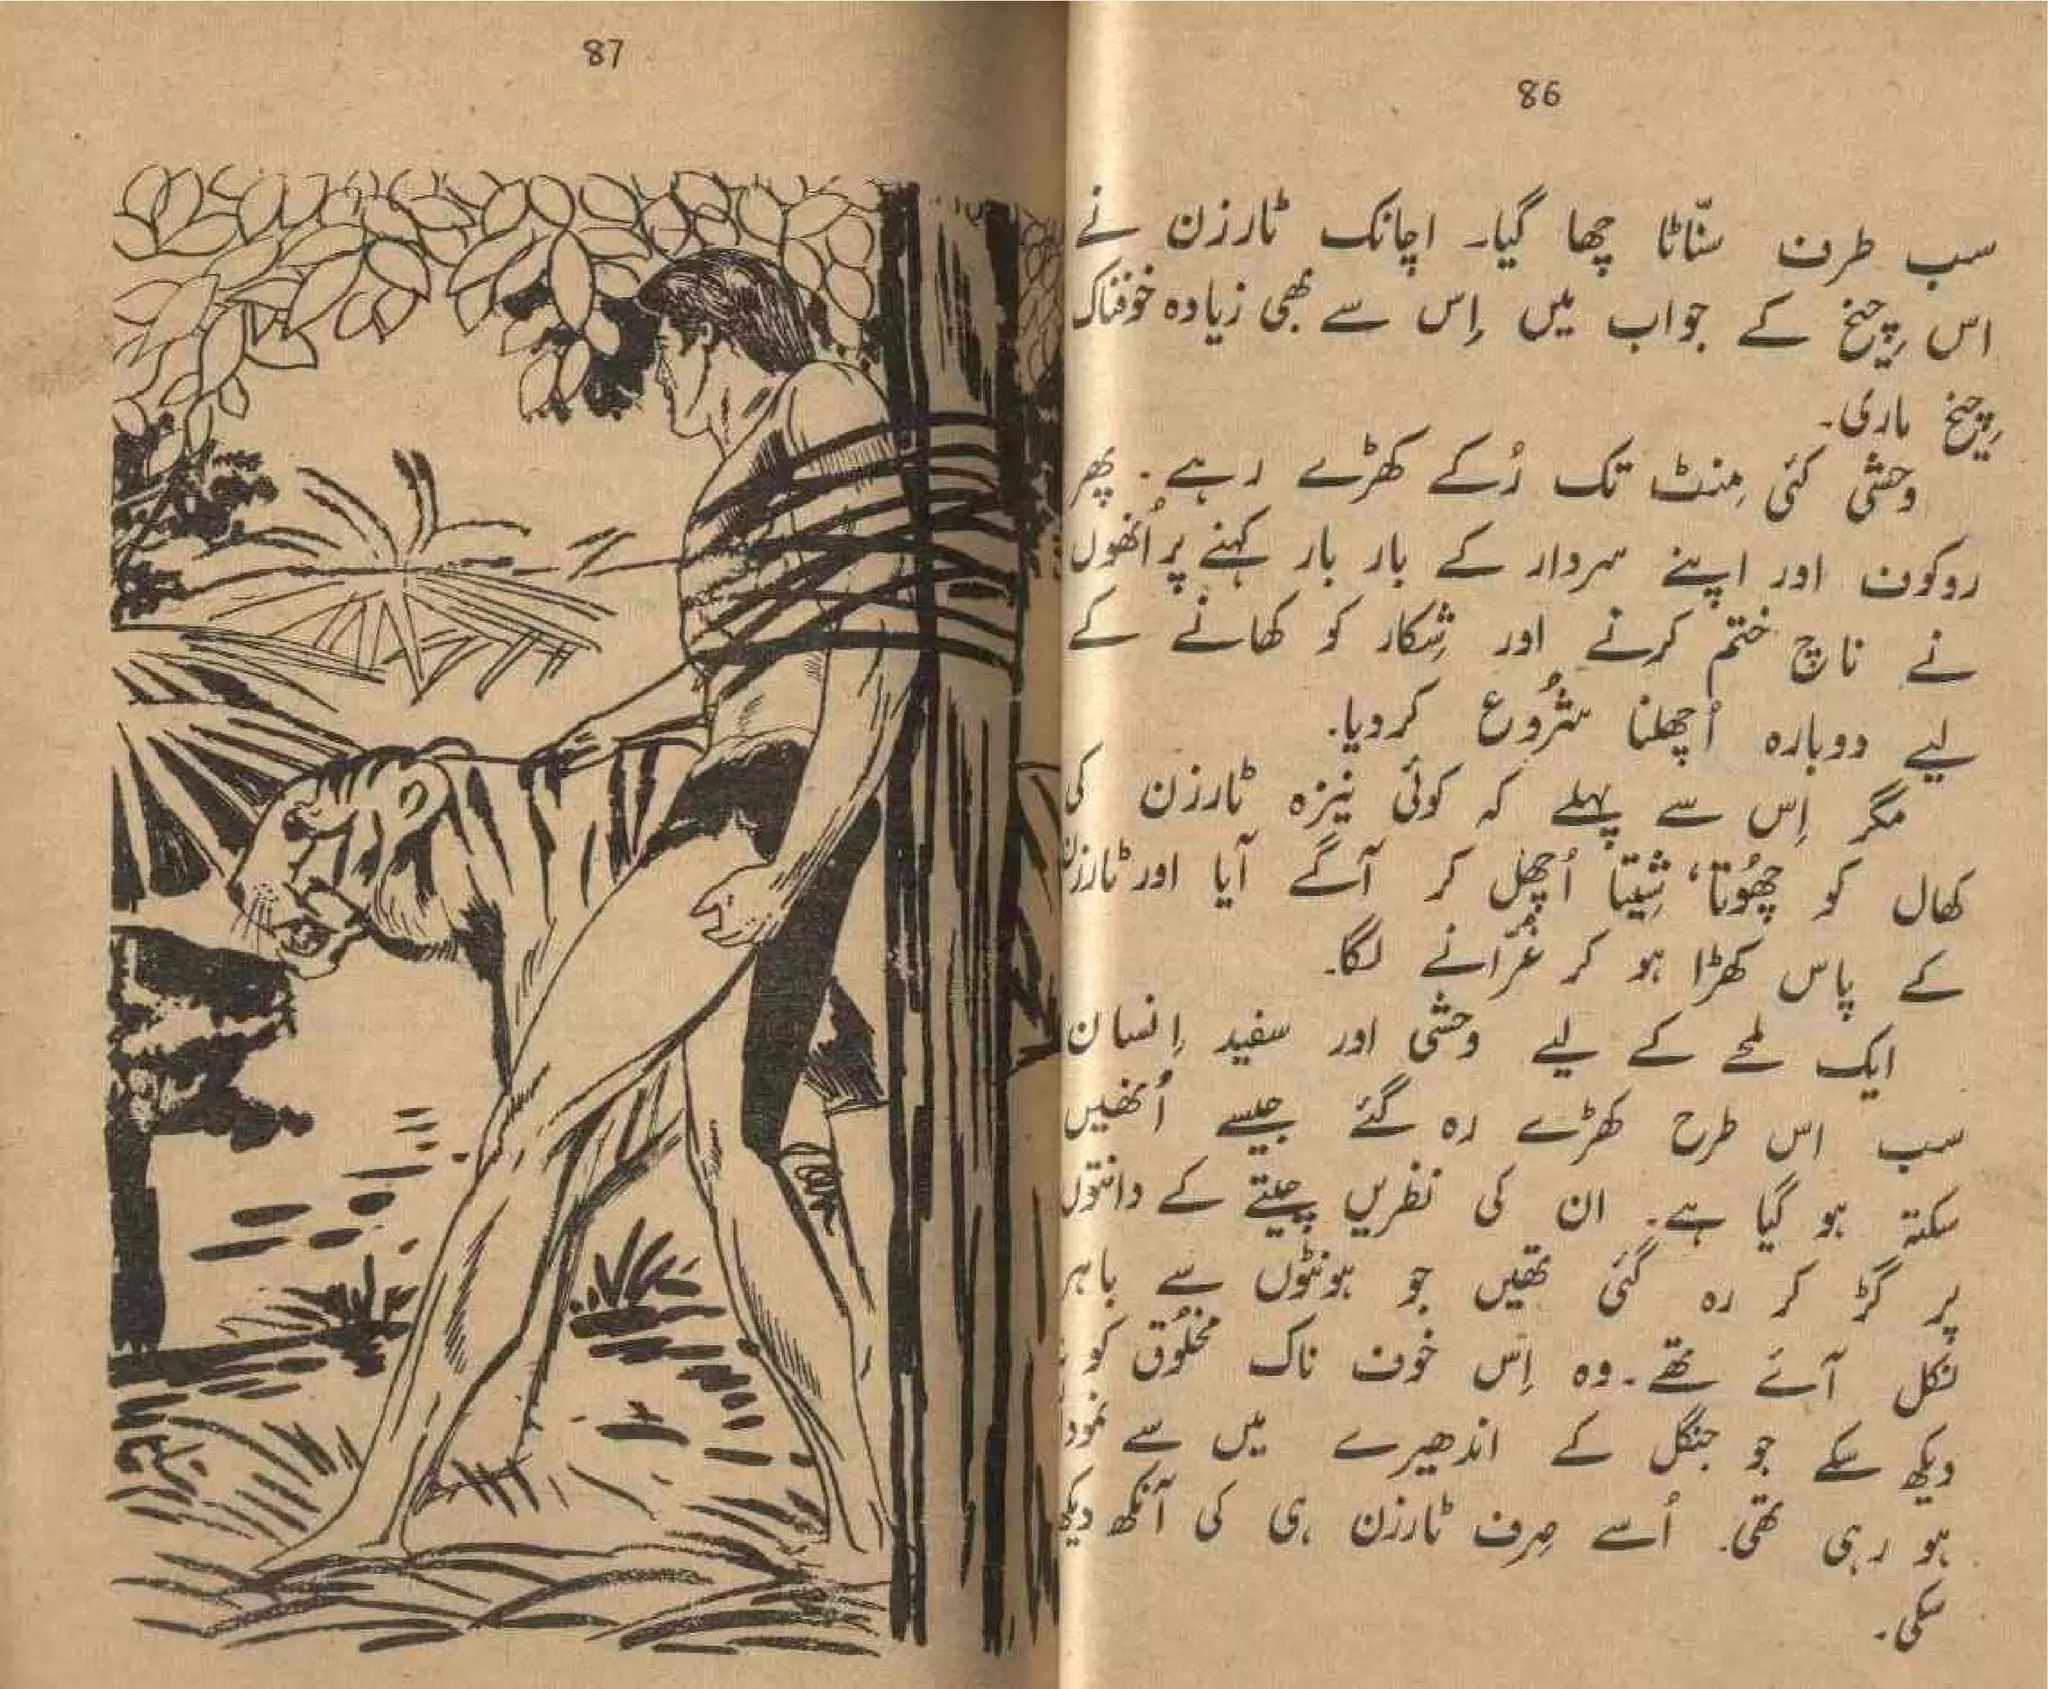 86
سب طرف سنّاٹا چھا گیا۔ اچانک ٹارزن نے
اس چِیخ کے جواب میں اِس سے بھی زیادہ خوفناک
چِیخ ماری۔
وحشی کئی مِنٹ تک رُکے کھڑے رہے۔ پھر
روکوف اور اپنے سردار کے بار بار کہنے پر اُنھوں
نے ناچ ختم کرنے اور شِکار کو کھانے کے
لیے دوبارہ اُچھلنا شرُوع کردیا۔
مگر اِس سے پہلے کہ کوئی نیزہ ٹارزن کی
کھال کو چھُوتا، شِیتا اُچھل کر آگے آیا اور ٹارزن
کے پاس کھڑا ہو کر غُرّانے لگا۔
ایک لمحے کے لیے وحشی اور سفید اِنسان
سب اس طرح کھڑے رہ گئے جیسے اُنھیں
سکتہ ہو گیا ہے۔ ان کی نظریں چیتے کے دانتوں
پر گڑ کر رہ گئی تھیں جو ہونٹوں سے باہر
نکل آئے تھے۔ وہ اِس خوف ناک مخلُوق کو
دیکھ سکے جو جنگل کے اندھیرے میں سے
ہو رہی تھی۔ اُسے صِرف ٹارزن ہی کی آنکھ دیکھ
سکی۔
87